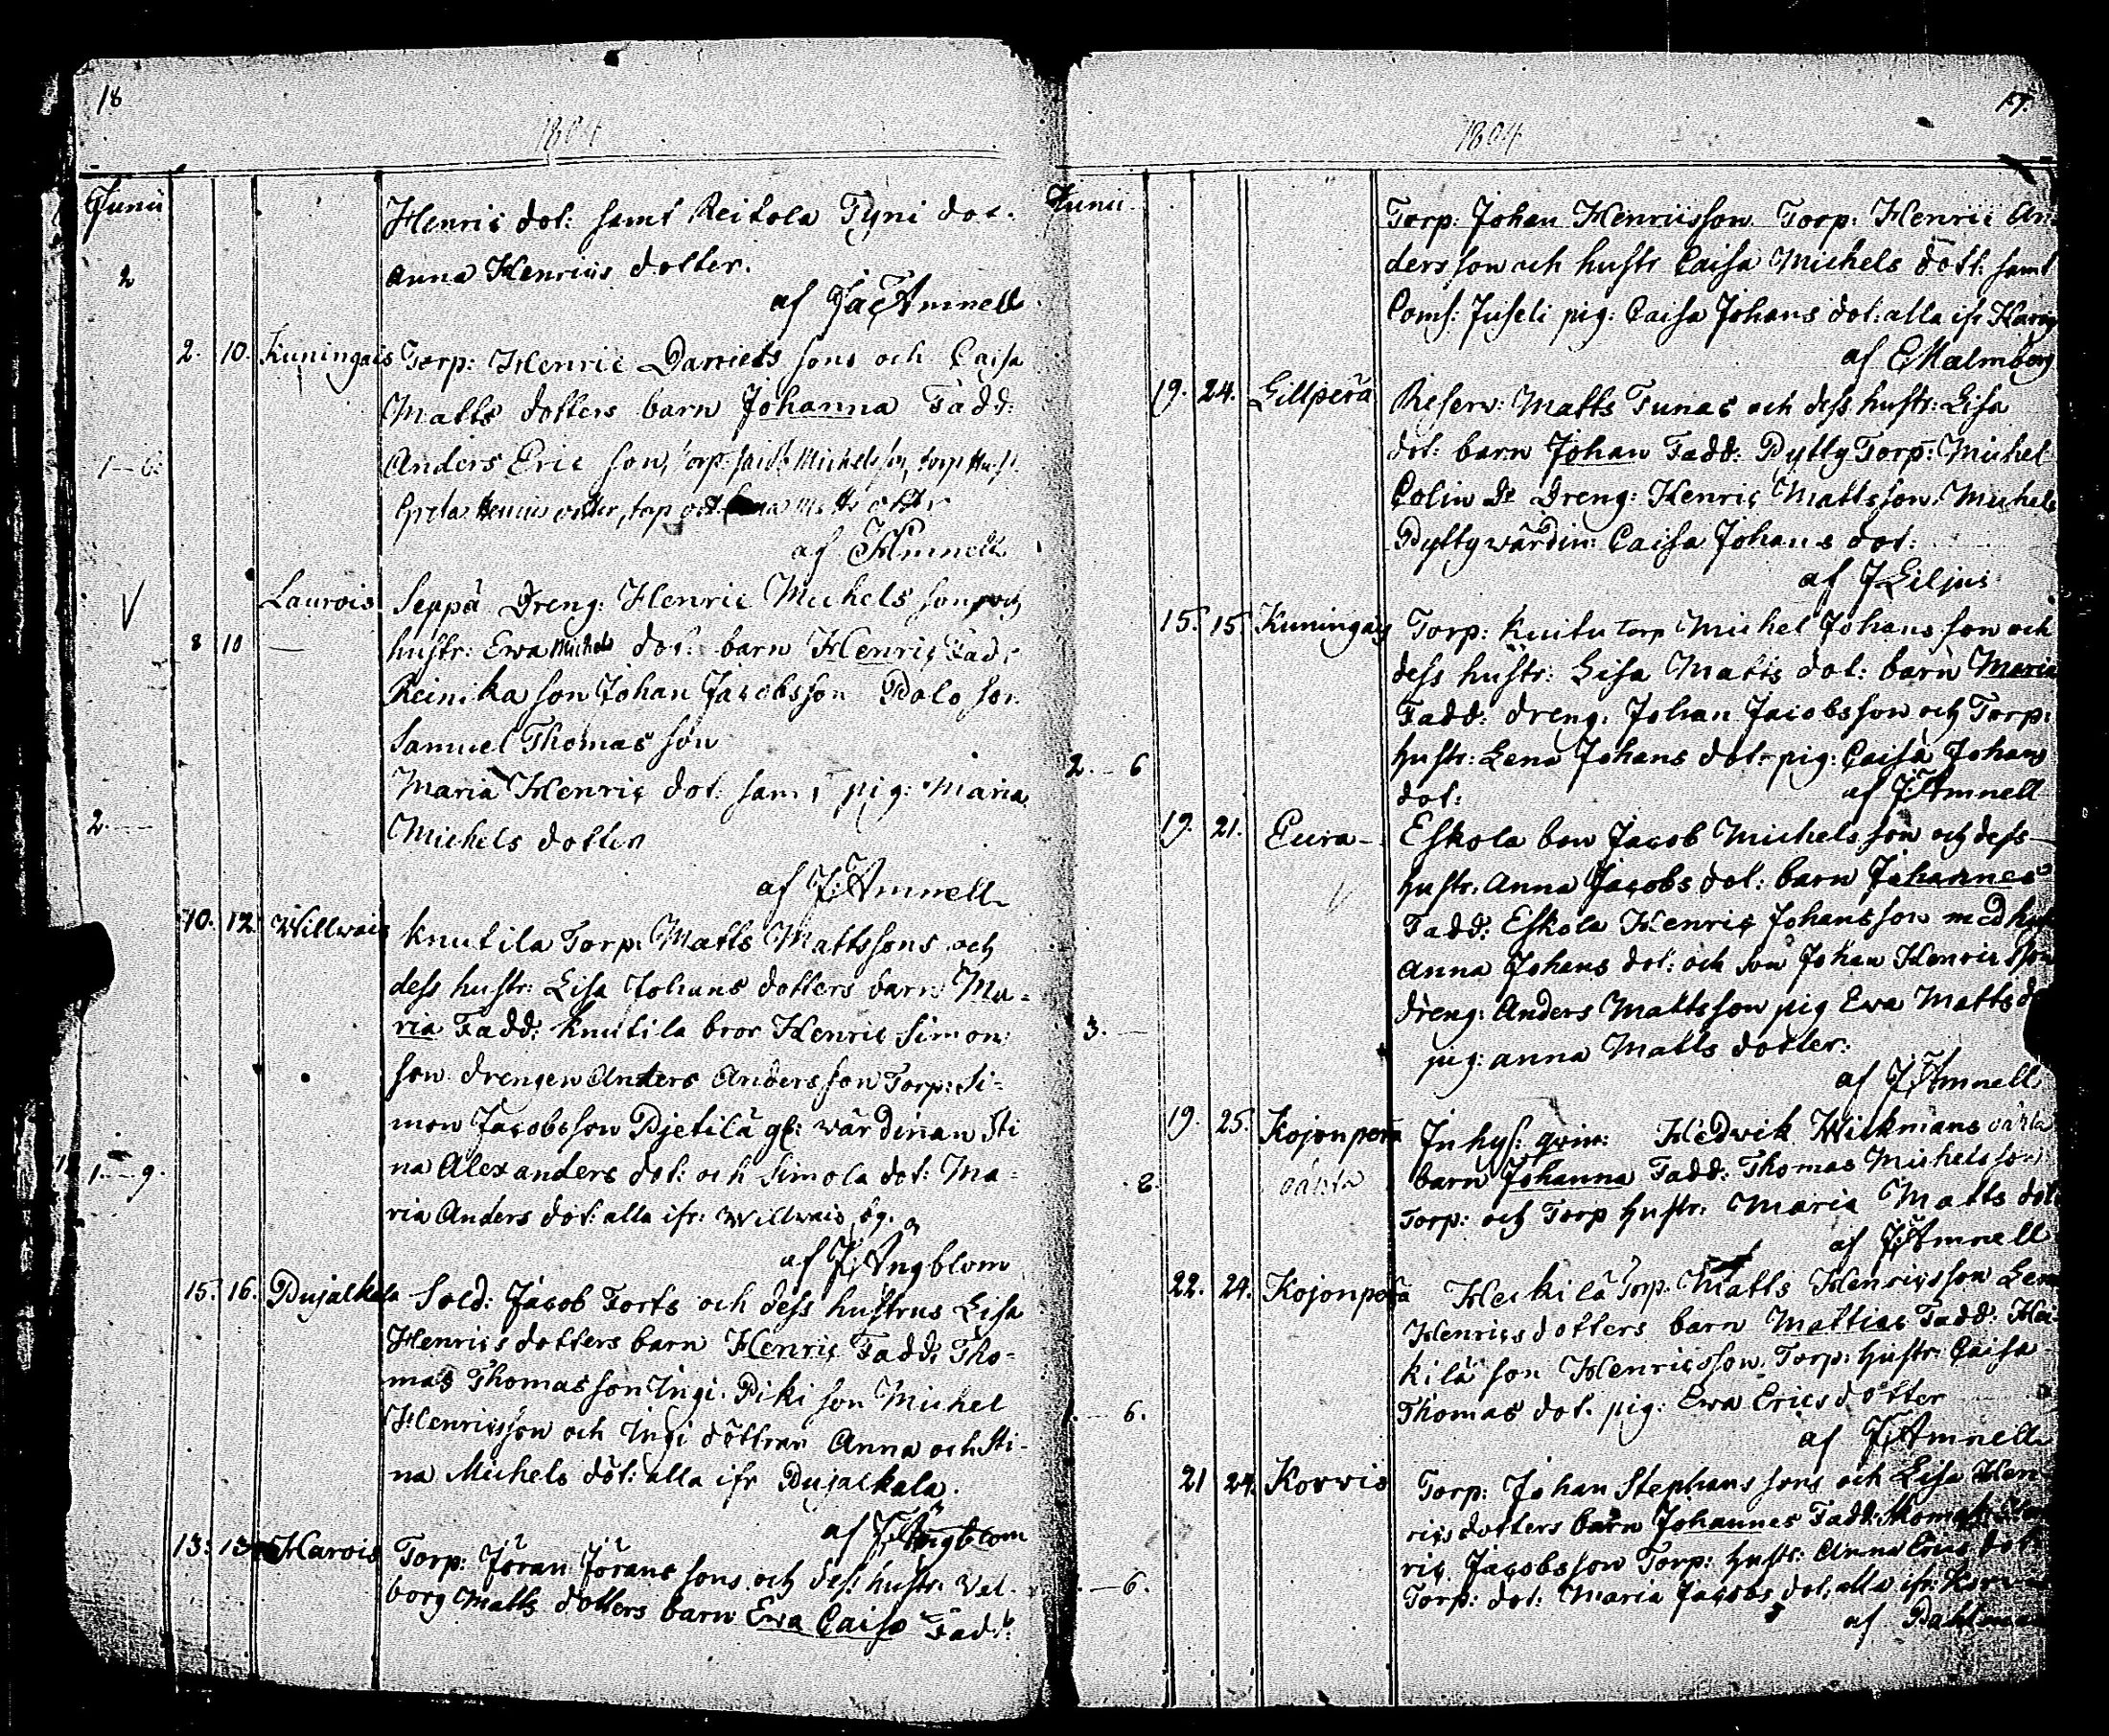 18
1804
Junii
Henric dot: samt Reikola Tyni dot.
2
Anna Henrics dotter.
af Amnell
2. 10. Kuningais Torp: Henric Daniels sons och Caisa
Matts dotters barn Johanna Fadd:
1 - 6. Anders Eric son, torp: Michelsson, torp
Greta dotter, torp
af Amnell
Laurois Seppä Dreng: Henric Michels son och
8 10 — hustr: Ewa Michels dot: barn Henric Fad:
Reinika son Johan Jacobsson Palo son
Samuel Thomas son
Maria Henric dot: samt pig: Maria
2. — Michels dotter
af J: Amnell
10. 12. Willwais Knutila Torp: Matts Mattssons och
dess hustr: Lisa Johans dotters barn Ma=
ria Fadd: Knutila bror Henric Simon
son drengen Anders Andersson Torp: Si=
mon Jacobsson Pietilä gl: wärdinan Sti
1. — 9. na Alexanders dot: och Simola dot: Ma=
ria Anders dot: alla ifr: Willwais by.
af J: Ångblom
15. 16. Pujalkala Sold: Jacob Forts och dess hustrus Lisa
Henrics dotters barn Henric Fadd: Tho=
mas Thomasson Ingi. Piki son Michel
Henricsson och Ingi döttrar Anna och Sti-
na Michels döt: alla ifr Pujalkala.
af J: Ångblom
13: 13 Harois Torp: Jöran Jörans sons och dess hustr: Wal-
borg Matts dotters barn Ewa Caisa Fadd:
19.
1804
Junii
Torp: Johan Henricsson. Torp: Henric An
dersson och hustr Caisa Michels dott: samt
Coms: Juseli pig: Caisa Johans dot: alla ifr
af E Malmberg
19. 24. Lillperä Reserv: Matts Funas och dess hustr: Lisa
dot: barn Johan Fadd: Pytty Torp: Michel
Colin Dreng: Henric Mattsson, Michels
Pytty wärdin: Caisa Johans dot:
af J Liljus
15. 15. Kuningais Torp: Kuitu Torp Michel Johans son och
dess hustr: Lisa Matts dot: barn Maria
Fadd: dreng: Johan Jacobsson och Torp:
2. - 6 hustr: Lena Johans dot: pig: Caisa Johans
dot: af J: Amnell
19. 21. Eura - Eskola bon Jacob Michelsson och dess
hustr: Anna Jacobs dot: barn Johannes
Fadd: Eskola Henric Johansson med
Anna Johans dot: och son Johan Henricsson
dreng: Anders Mattsson pig Ewa Matts
3. — pig: Anna Matts dotter:
af J: Amnell
19. 25. Kojonperä Inhys: qvin: Hedvik Wickmans oäkta
8. oäkta barn Johanna Fadd: Thomas Michelsson
Torp: och Torp hustr: Maria Matts dot
af J: Amnell
22. 24. Kojonperä Heikilä Torp: Matts Henricsson Lena
Henrics dotters barn Mattias Fadd: Hei=
kilä son Henricsson. Torp: hustr: Caisa
1. — 6. Thomas dot. pig: Ewa Erics dotter
af J: Amnell
21 24. Korvis Torp: Johan Stephans sons och Lisa Hen
rics dotters barn Johannes Fadd:
ric Jacobsson Torp: hustr: Anna Erics dot
1. — 6. Torp: dot: Maria Jacobs dot: alla ifr:
af Dahlman